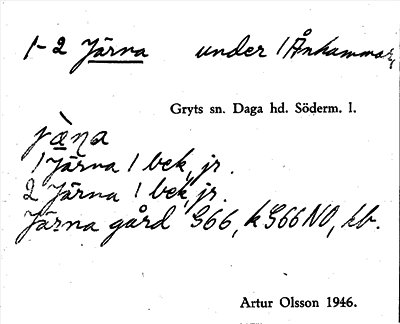 1-2 Järna under 1 Ånhammar,
Gryts sn. Daga hd. Söderm. l.
jæ̀ṇa
1 Järna 1 bek, jr.
2 Järna 1 bek, jr.
Järna gård G66, k G66 NO, kb.
Artur Olsson 1946.